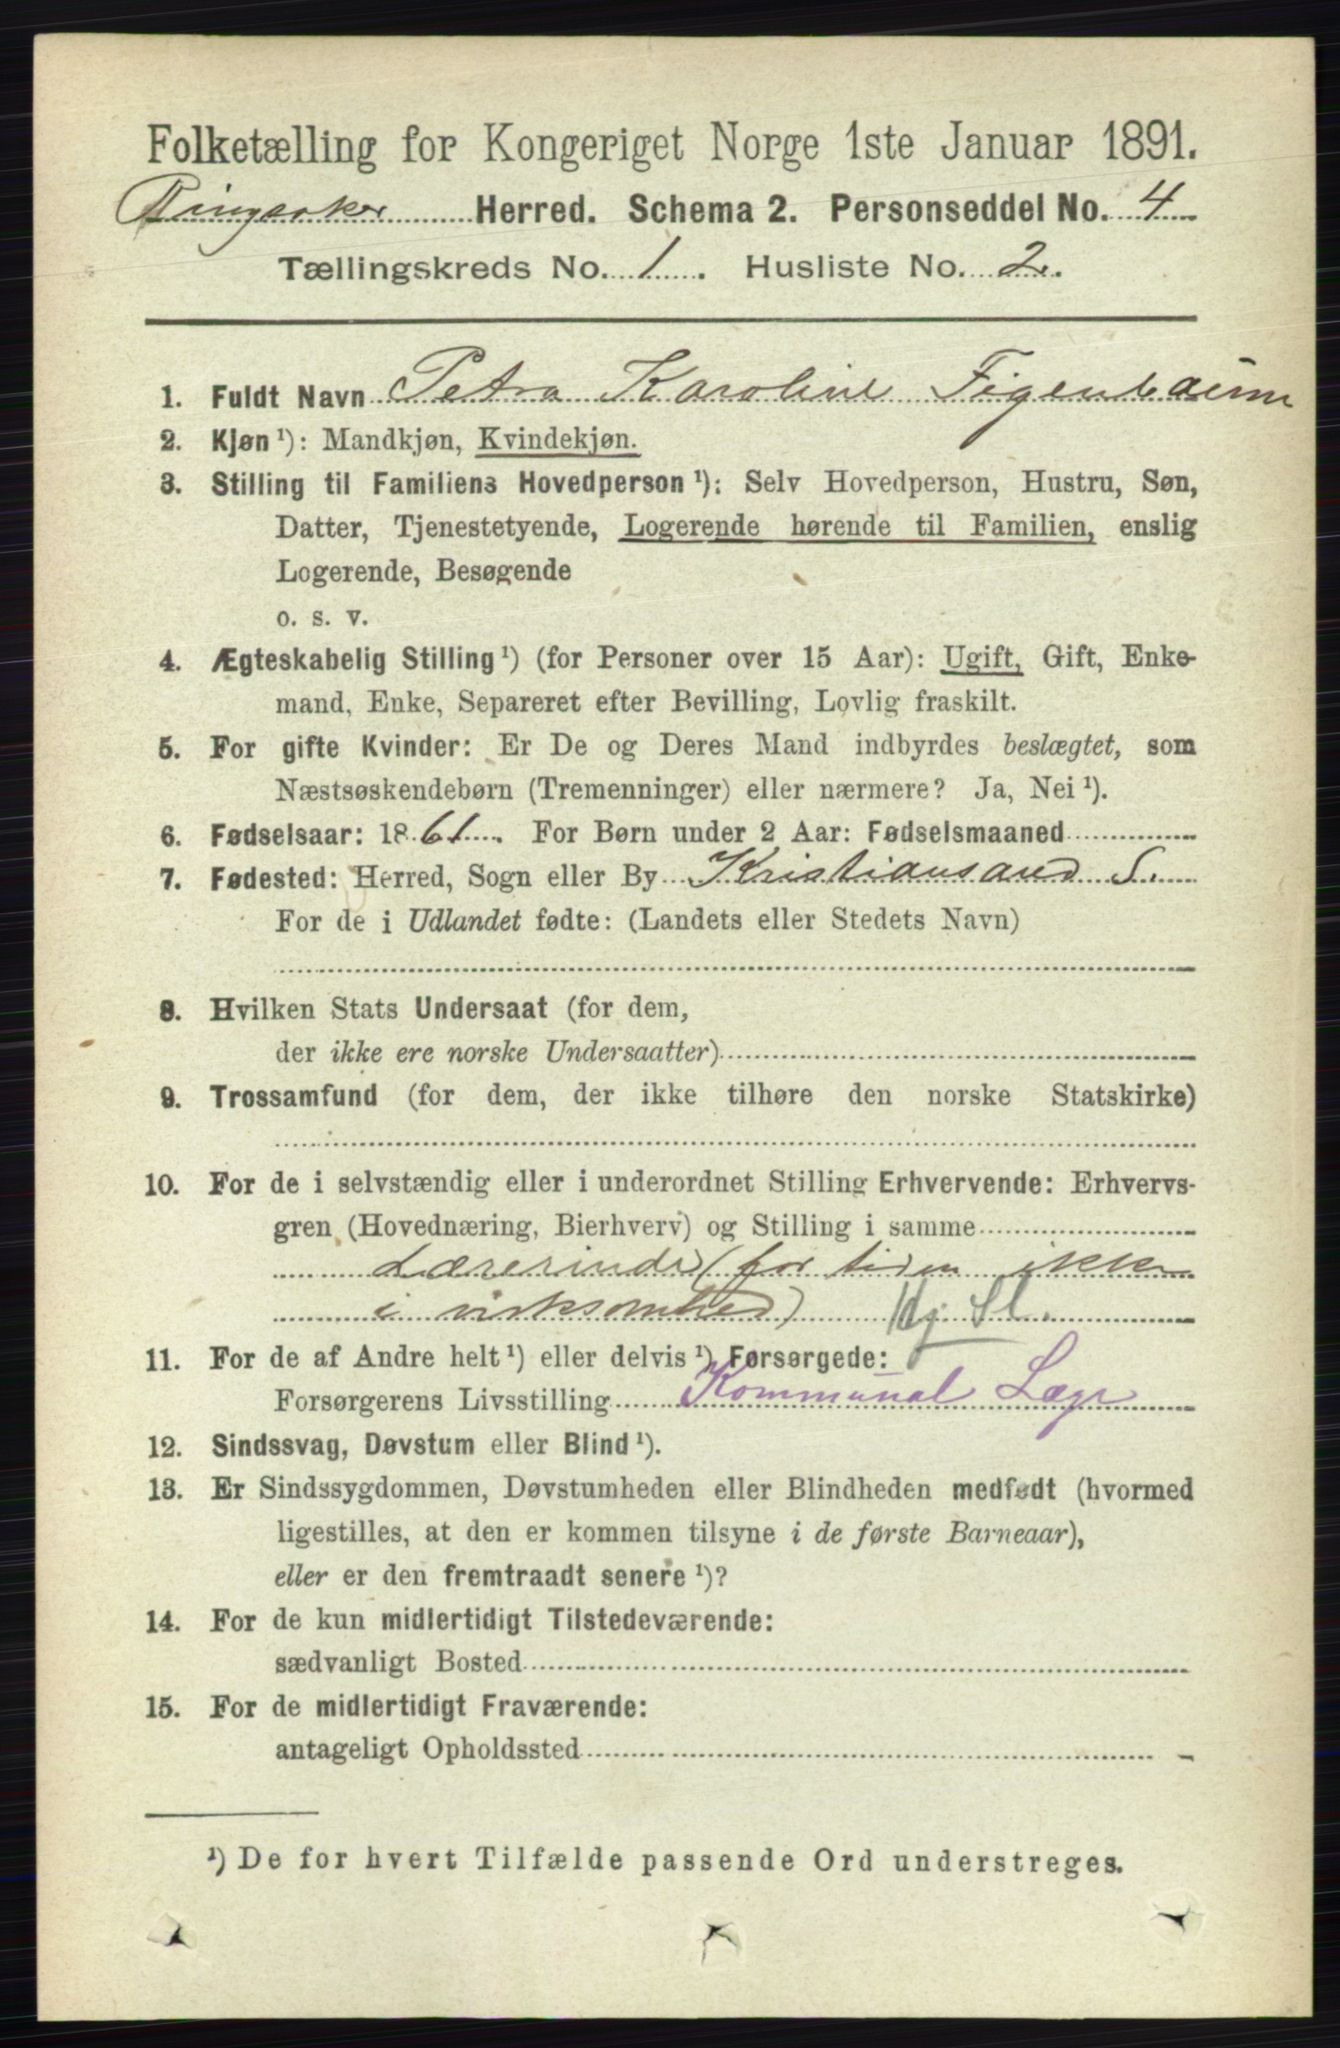 Folketælling for Kongeriget Norge 1ste Januar 1891.
Ringsaker Herred. Schema 2. Personseddel No. 4
Tællingskreds No. 1. Husliste No. 2.
1. Fuldt Navn Petra Karoline Figenbaum
2. Kjøn ¹): Mandkjøn, Kvindekjøn.
3. Stilling til Familiens Hovedperson ¹): Selv Hovedperson, Hustru, Søn,
Datter, Tjenestetyende, Logerende hørende til Familien, enslig
Logerende, Besøgende
o. s. v.
4. Ægteskabelig Stilling ¹) (for Personer over 15 Aar): Ugift, Gift, Enke-
mand, Enke, Separeret efter Bevilling, Lovlig fraskilt.
5. For gifte Kvinder: Er De og Deres Mand indbyrdes beslægtet, som
Næstsøskendebørn (Tremenninger) eller nærmere? Ja, Nei ¹).
6. Fødselsaar: 1861. For Børn under 2 Aar: Fødselsmaaned
7. Fødested: Herred, Sogn eller By Kristiansand S.
For de i Udlandet fødte: (Landets eller Stedets Navn)
8. Hvilken Stats Undersaat (for dem,
der ikke ere norske Undersaatter)
9. Trossamfund (for dem, der ikke tilhøre den norske Statskirke)
10. For de i selvstændig eller i underordnet Stilling Erhvervende: Erhvervs-
gren (Hovednæring, Bierhverv) og Stilling i samme
Lærerinde (for tiden ikke
i virksomhed)
11. For de af Andre helt ¹) eller delvis ¹) Forsørgede:
Forsørgerens Livsstilling Kommunal Læge
12. Sindssvag, Døvstum eller Blind ¹).
13. Er Sindssygdommen, Døvstumheden eller Blindheden medfødt (hvormed
ligestilles, at den er kommen tilsyne i de første Barneaar),
eller er den fremtraadt senere ¹)?
14. For de kun midlertidigt Tilstedeværende:
sædvanligt Bosted
15. For de midlertidigt Fraværende:
antageligt Opholdssted
¹) De for hvert Tilfælde passende Ord understreges.